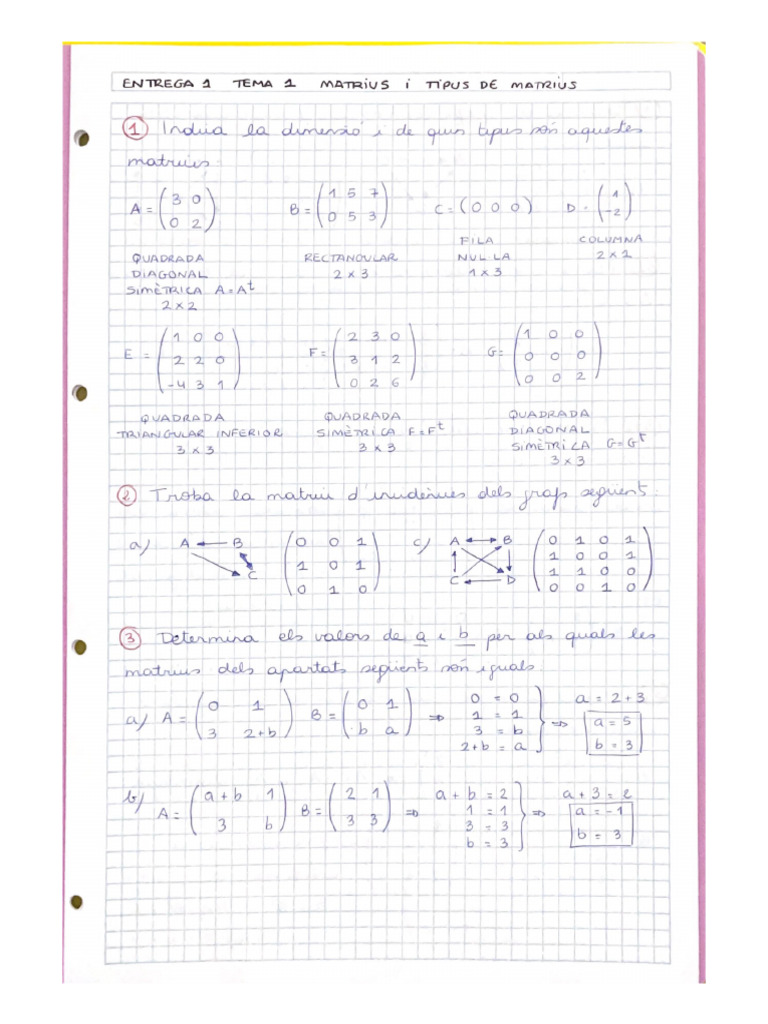 ENTREGA 1 TEMA 1 MATRIUS i TIPUS DE MATRIUS
① Indica la dimensió i de quin tipus són aquestes
matrius
A = (3 0 / 0 2) B = (1 5 7 / 0 5 3) C = (0 0 0) D = (1 / -2)
QUADRADA
DIAGONAL
SIMÈTRICA A=Aᵗ
2 x 2
RECTANGULAR
2 x 3
FILA
NUL·LA
1 x 3
COLUMNA
2 x 1
E = (1 0 0 / 2 2 0 / -4 3 1) F = (2 3 0 / 3 1 2 / 0 2 6) G = (1 0 0 / 0 0 0 / 0 0 2)
QUADRADA
TRIANGULAR INFERIOR
3 x 3
QUADRADA
SIMÈTRICA F=Fᵗ
3 x 3
QUADRADA
DIAGONAL
SIMÈTRICA G=Gᵗ
3 x 3
② Troba la matriu d'incidències dels grafs següent:
a) A B C (0 0 1 / 1 0 1 / 0 1 0) c) A B C D (0 1 0 1 / 1 0 0 1 / 1 1 0 0 / 0 0 1 0)
③ Determina els valors de a i b per als quals les
matrius dels apartats següent són iguals
a) A = (0 1 / 3 2+b) B = (0 1 / b a) ⇒ ⇒
0 = 0
1 = 1
3 = b
2+b = a
a = 2+3
a = 5
b = 3
b) A = (a+b 1 / 3 b) B = (2 1 / 3 3) ⇒ ⇒
a + b = 2
1 = 1
3 = 3
b = 3
a + 3 = 2
a = -1
b = 3